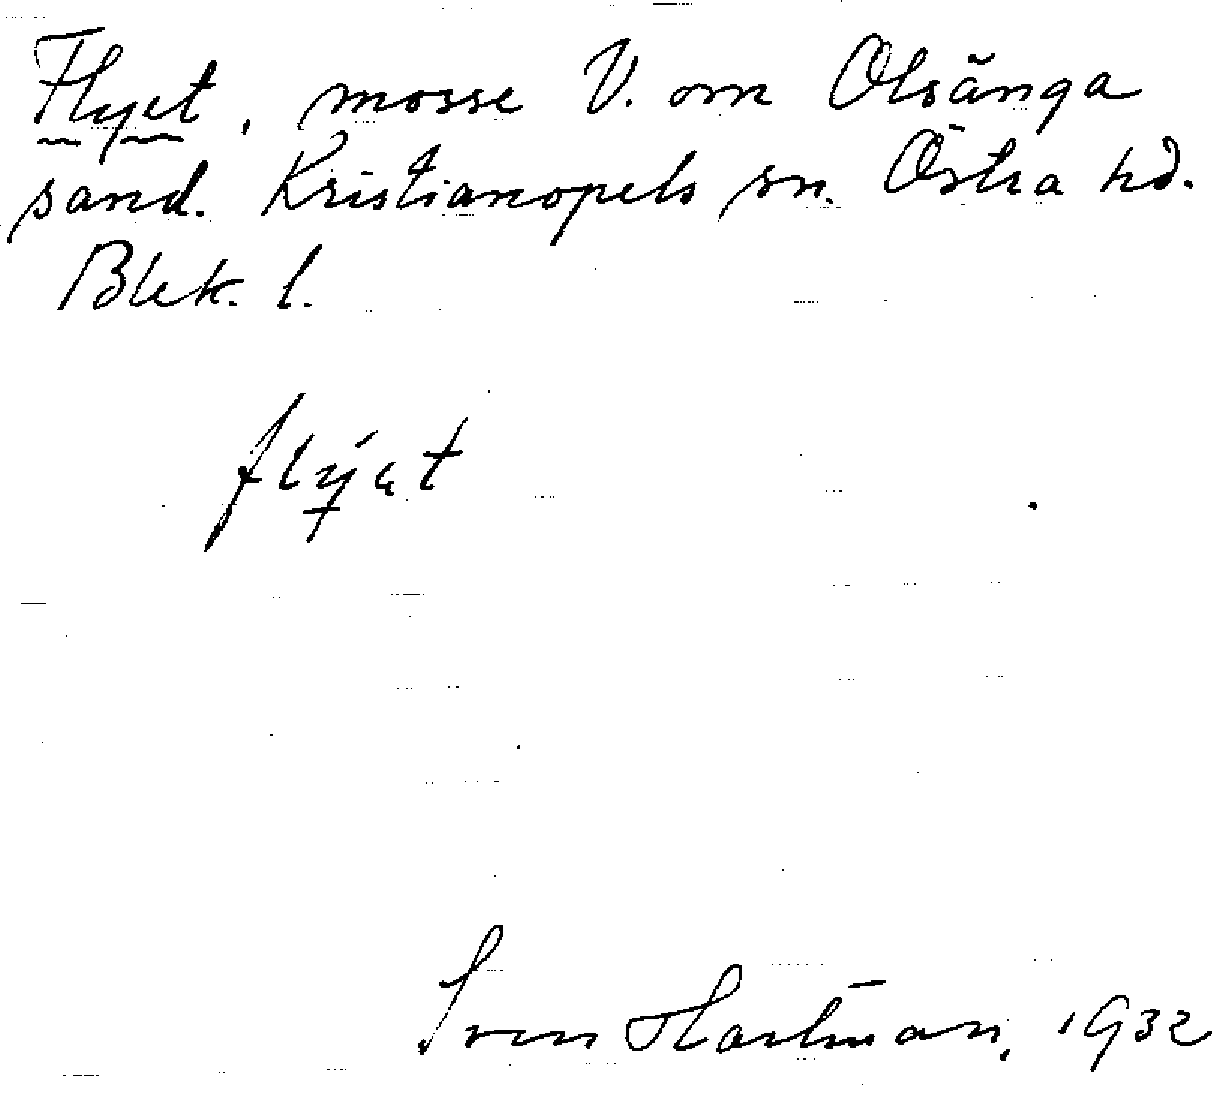 Flyet, mosse V. om Olsänga
sand. Kristianopels sn. Östra hd.
Blek. l.
flýet
Sven Hartman, 1932